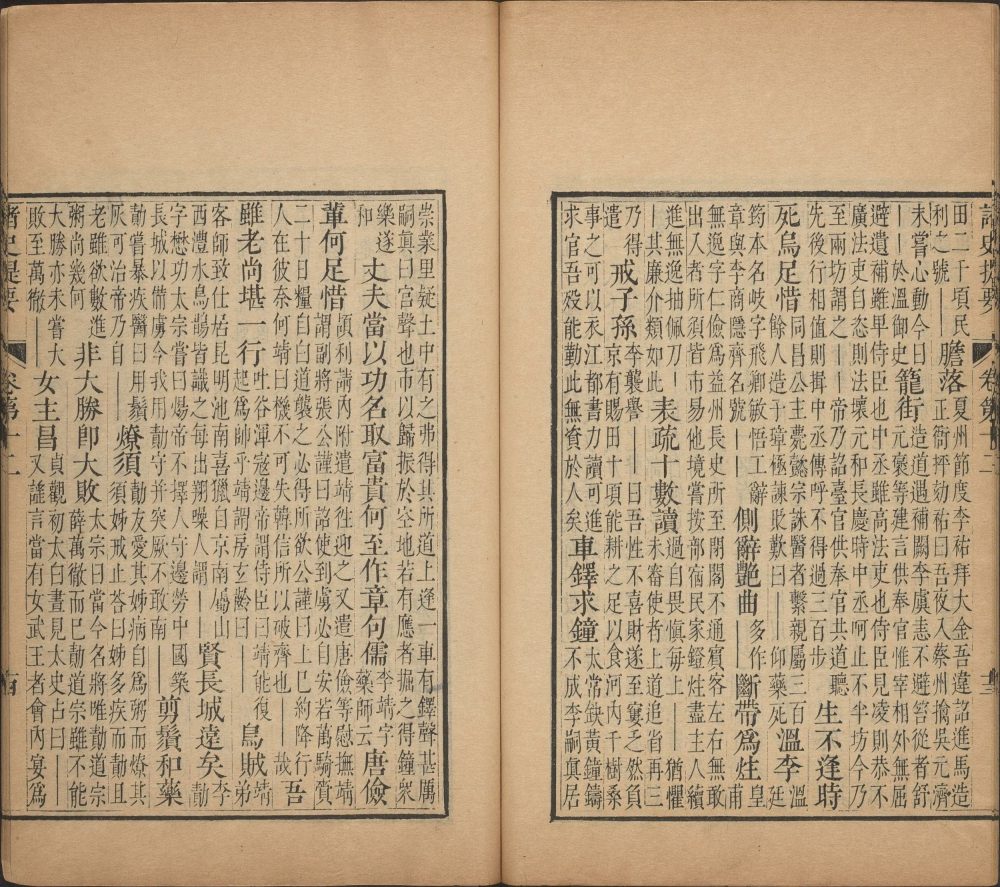 諸史提要
卷第十二
田二千頃民
利之號——
膽落
夏州節度李祐拜大金吾違詔進馬造
正衙抨劾祐曰吾夜入蔡州擒吳元濟
未嘗心動今日
——於溫御史
籠街
造道遇補闕李虞恚不避笞從者舒
元褒等建言供奉官惟宰相外無屈
避遺補雖卑侍臣也中丞雖高法吏也侍臣見凌則恭不
廣法吏自恣則法壞元和長慶時中丞呵止不半坊今乃
至兩坊謂之——帝乃詔臺官供奉官共道聽
先後行相值則揖中丞傳呼不得過三百步
生不逢時
死烏足惜
同昌公主薨懿宗誅醫者繫親屬三百
餘人造于章極諫敗歎曰——仰藥死
溫李
溫
廷
筠本名岐字飛卿敏悟工辭
章與李商隱齊名號——
側辭艷曲
多作
——
斷帶爲炷
皇
甫
無逸字仁儉爲益州長史所至閉閣不通賓客左右無敢
出入者所須皆市易他境嘗按部宿民家鐙炷盡主人續
進無逸抽佩刀——
——其廉介類如此
表疏十數讀
過自畏慎每上——猶懼
未審使者上道追省再三
乃得
遣
戒子孫
李襲譽——曰吾性不喜財遂至窶乏然負
京有賜田十頃能耕之足以食河內千樹桑
事之可以衣江都書力讀可進
求官吾歿能勤此無資於人矣
車鐸求鐘
太常缺黃鐘鑄
不成李嗣眞居
崇業里疑土中有之弗得其所道上逢一車有鐸聲甚厲
嗣眞曰宮聲也市以歸振於空地若有應者掘之得鐘衆
樂遂
和
丈夫當以功名取富貴何至作章句儒
李靖字
藥師云
唐儉
輩何足惜
頡利請內附遣靖徃迎之又遣唐儉等慰撫靖
謂副將張公謹曰詔使到虜必自安若萬騎齎
二十日糧自白道襲之必得所欲公謹曰上巳約降行
人在彼奈何靖曰機不可失韓信所以破齊也——哉
吾
雖老尚堪一行
吐谷渾寇邊帝謂侍臣曰靖能復
起爲師乎靖謂房玄齡曰——
烏賊
靖
弟
客師致仕居昆明池南喜獵自京南屬山
西灃水鳥鵲皆識之每出翔噪人謂——
賢長城遠矣
李
勣
字懋功太宗嘗曰煬帝不擇人守邊勞中國築
長城以備虜今我用勣守并突厥不敢南——
剪鬚和藥
勣嘗暴疾醫曰用鬚
灰可治帝乃自——
燎須
勣友愛其姊病自爲粥而燎其
須姊戒止荅曰姊多疾而勣且
老雖欲數進
粥尚幾何
非大勝卽大敗
太宗曰當今名將唯勣道宗
薛萬徹而巳勣道宗雖不能
大勝亦未嘗大
敗至萬徹——
女主昌
貞觀初太白晝見太史占曰——
又謠言當有女武王者會內宴爲
諸史提要
卷第十二